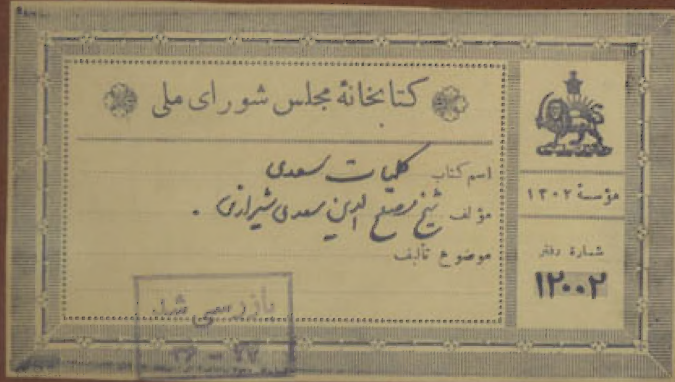 کتابخانهٔ مجلس شورای ملی
اسم کتاب کلیات سعدی
مؤلف شیخ مصلح الدین سعدی شیرازی .
موضوع تألیف
مؤسسهٔ ۱۳۰۲
شمارهٔ دفتر
۱۲۰۰۲
بازرسی شد